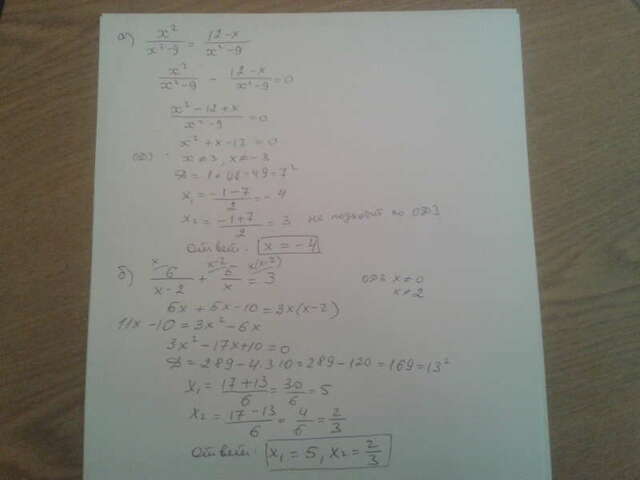 а) x²/(x²-9) = (12-x)/(x²-9)
x²/(x²-9) - (12-x)/(x²-9) = 0
(x²-12+x)/(x²-9) = 0
x² + x - 13 = 0
ОДЗ: x ≠ 3, x ≠ -3
D = 1 + 48 = 49 = 7²
x₁ = (-1-7)/2 = -4
x₂ = (-1+7)/2 = 3 не подходит по ОДЗ
Ответ: x = -4
б) 6/(x-2) + 5/x = 3 ОДЗ x ≠ 0
x x-2 x(x-2) x ≠ 2
6x + 5x - 10 = 3x(x-2)
11x - 10 = 3x² - 6x
3x² - 17x + 10 = 0
D = 289 - 4·3·10 = 289 - 120 = 169 = 13²
x₁ = (17+13)/6 = 30/6 = 5
x₂ = (17-13)/6 = 4/6 = 2/3
Ответ: x₁ = 5, x₂ = 2/3